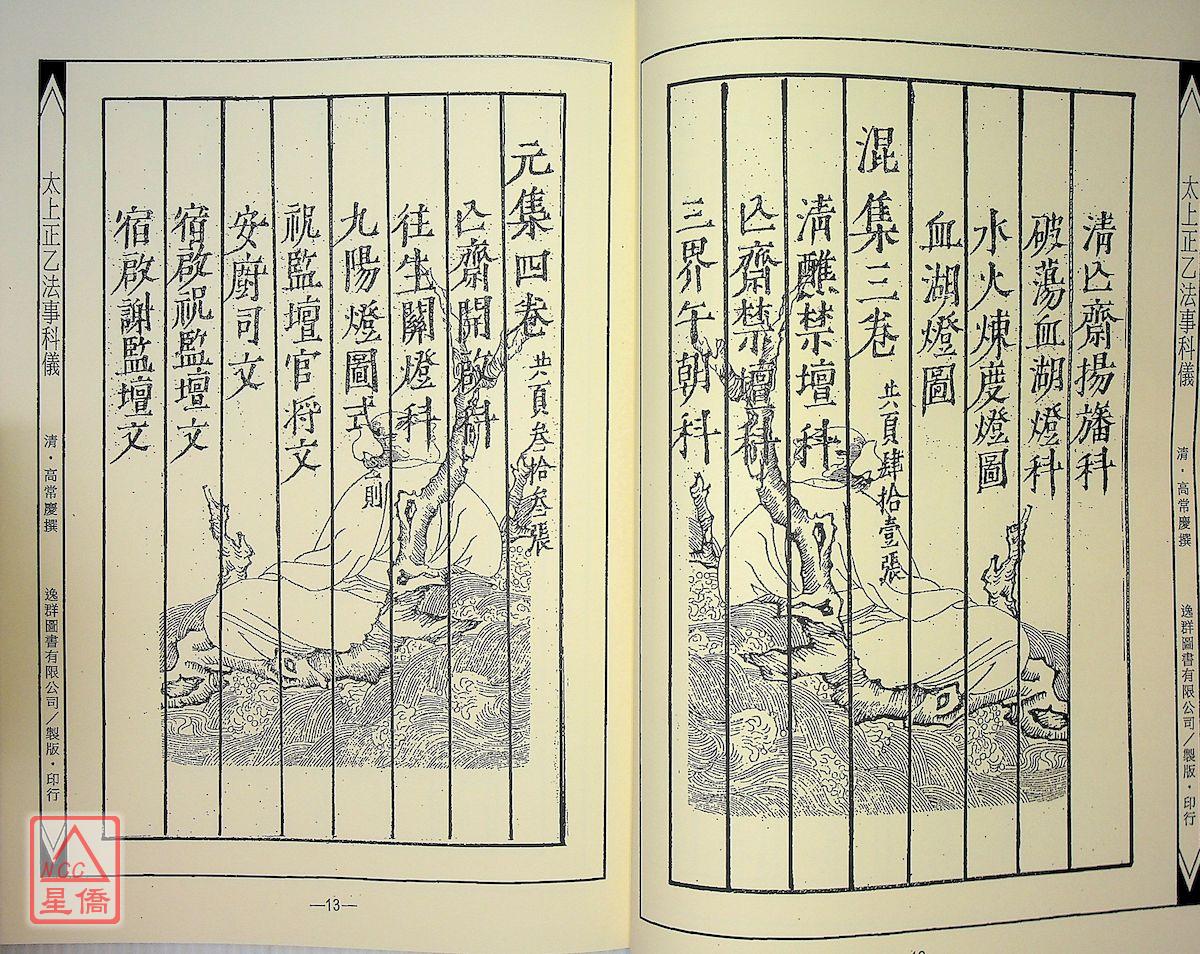 太上正乙法事科儀 清・高常慶撰 逸群圖書有限公司／製版・印行
清亾齋揚旛科
破蕩血湖燈科
水火煉度燈圖
血湖燈圖
混集三卷 共頁肆拾壹張
清醮禁壇科
亾齋禁壇科
三界午朝科
元集四卷 共頁叁拾叁張
亾齋開啟科
往生關燈科
九陽燈圖式 則
祝監壇官将文
安廚司文
宿啟祝監壇文
宿啟謝監壇文
太上正乙法事科儀 清・高常慶撰 逸群圖書有限公司／製版・印行
—13—
NCC
星僑